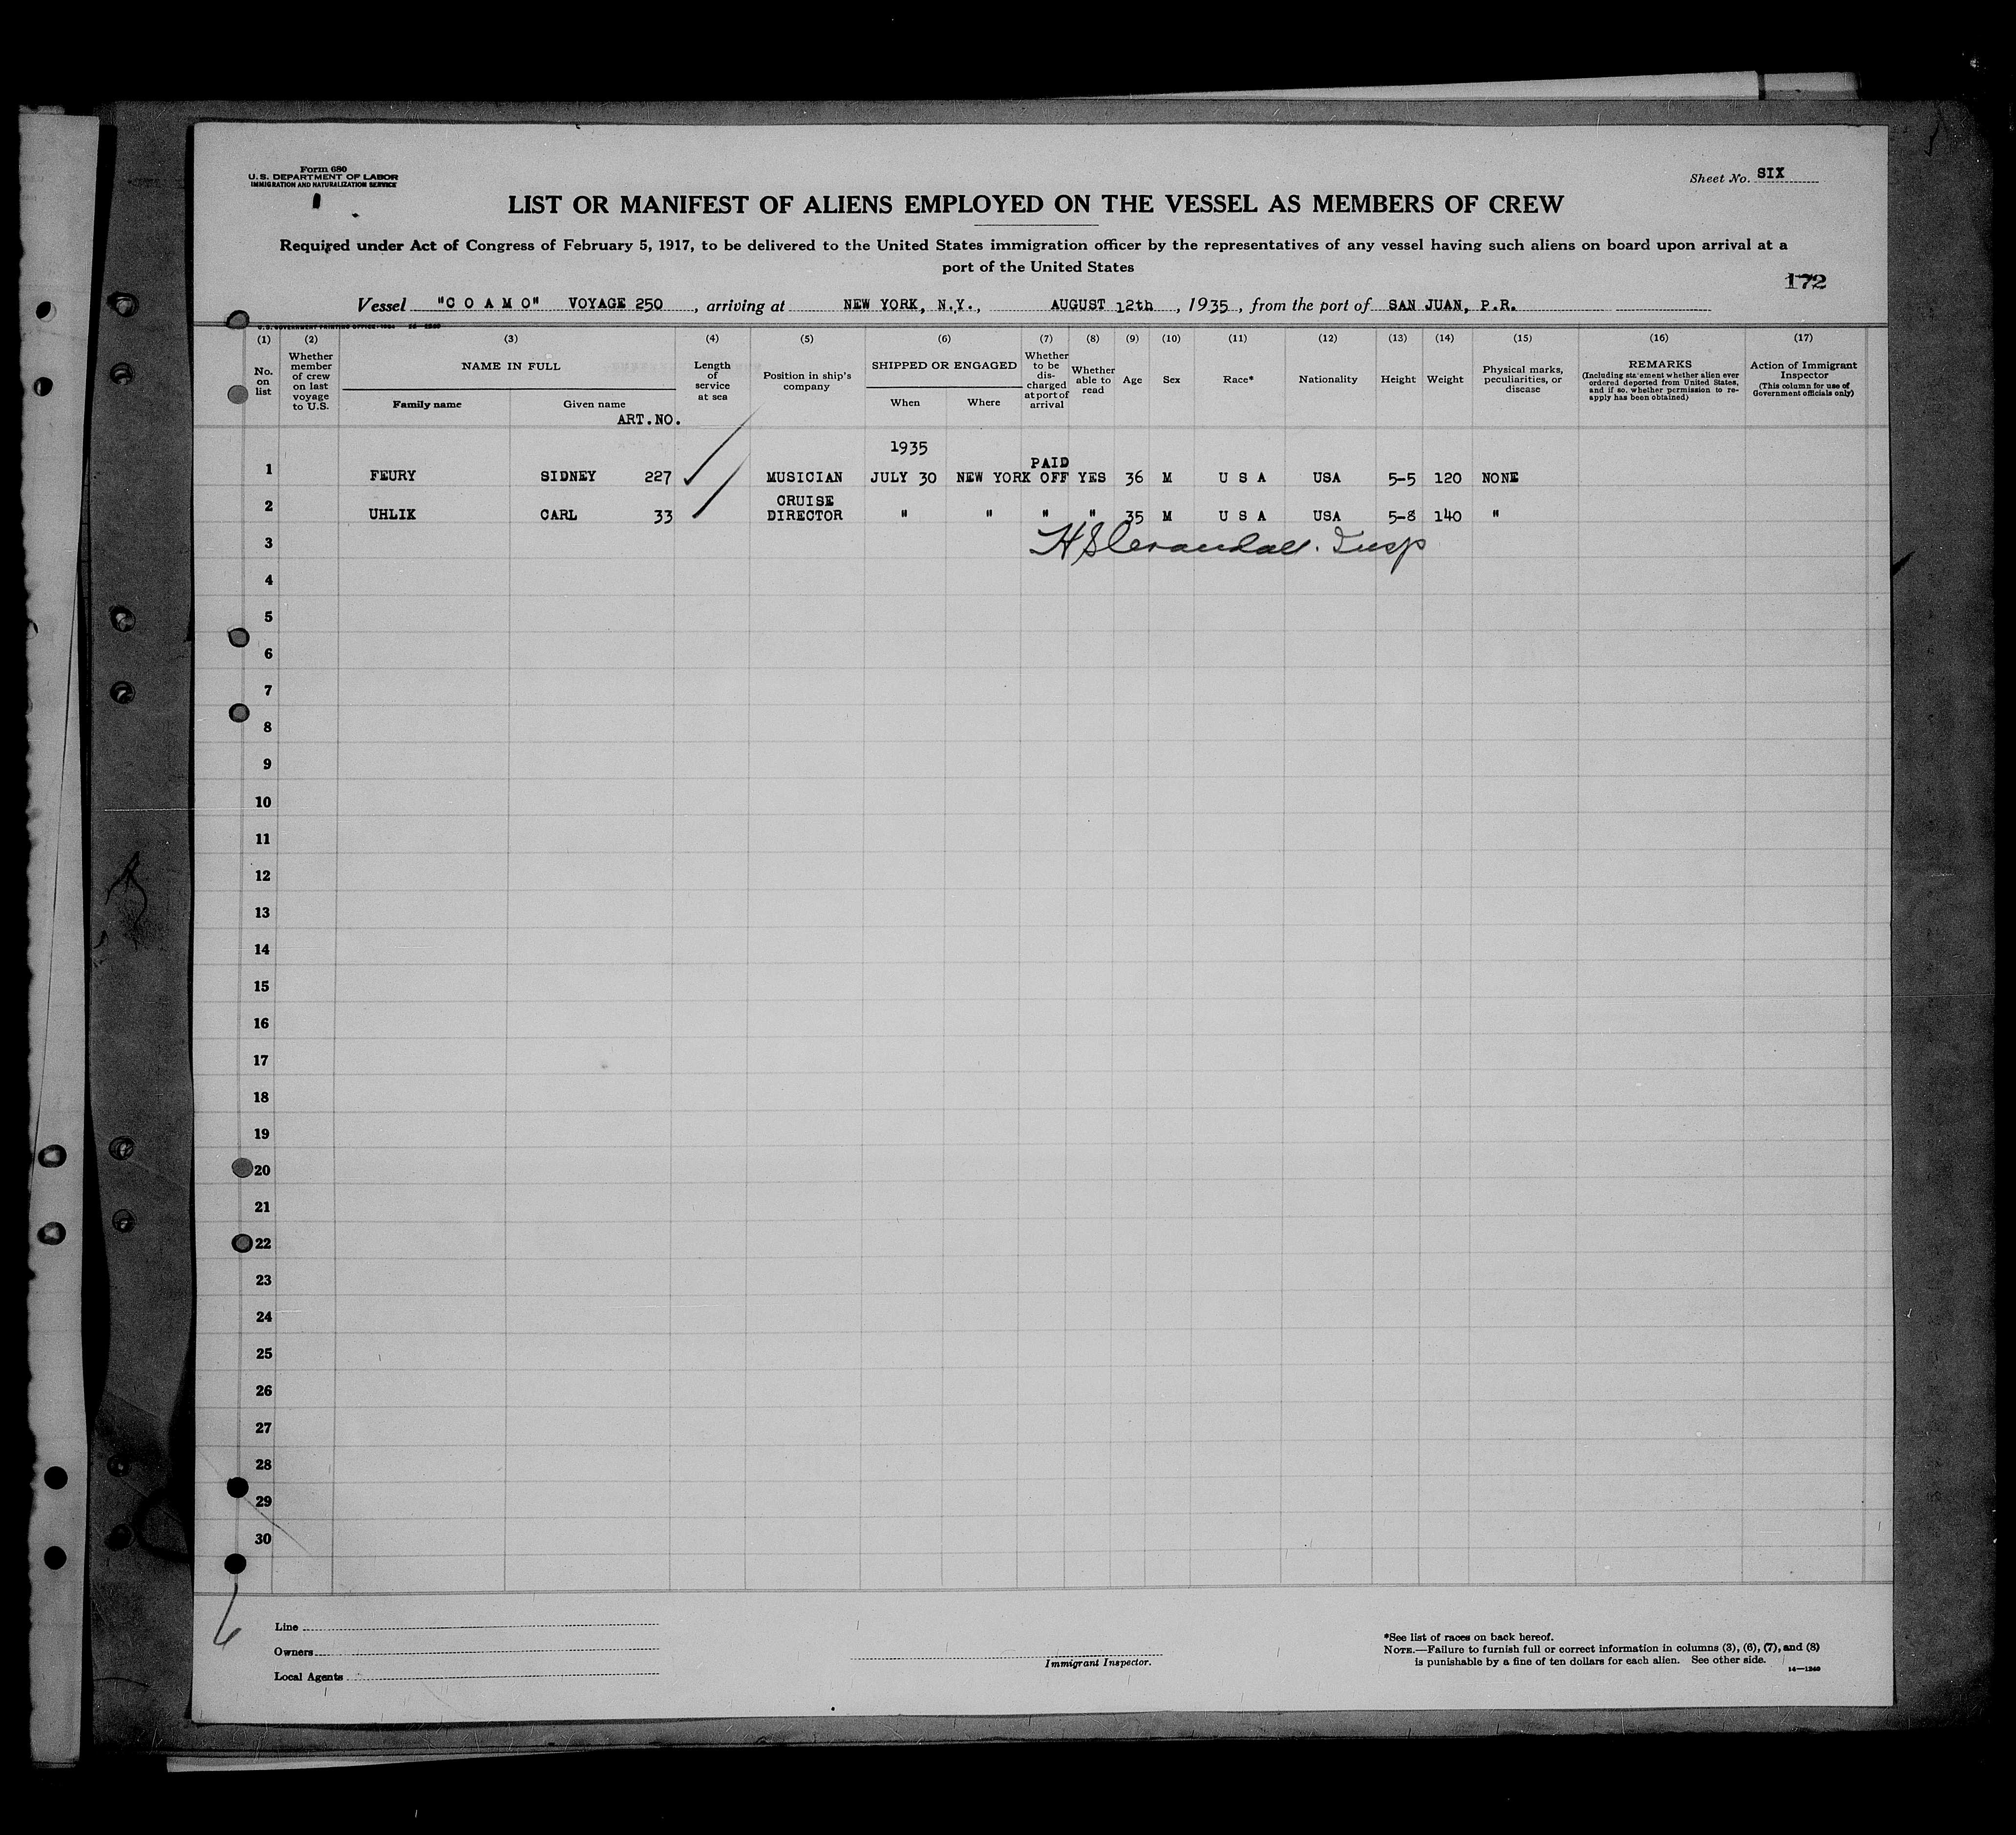 Form 680
U.S. DEPARTMENT OF LABOR
IMMIGRATION AND NATURALIZATION SERVICE
Sheet No. SIX
LIST OR MANIFEST OF ALIENS EMPLOYED ON THE VESSEL AS MEMBERS OF CREW
Required under Act of Congress of February 5, 1917, to be delivered to the United States immigration officer by the representatives of any vessel having such aliens on board upon arrival at a
port of the United States
172
Vessel "C O A M O" VOYAGE 250, arriving at NEW YORK, N.Y., AUGUST 12th, 1935, from the port of SAN JUAN, P.R.
U.S. GOVERNMENT PRINTING OFFICE: 1934 14—1240
(1) (2) (3) (4) (5) (6) (7) (8) (9) (10) (11) (12) (13) (14) (15) (16) (17)
No. on list
Whether member of crew on last voyage to U.S.
NAME IN FULL
Family name Given name
ART.NO.
Length of service at sea
Position in ship's company
SHIPPED OR ENGAGED
When Where
Whether to be discharged at port of arrival
Whether able to read
Age
Sex
Race*
Nationality
Height
Weight
Physical marks, peculiarities, or disease
REMARKS
(Including statement whether alien ever ordered deported from United States, and if so, whether permission to re-apply has been obtained)
Action of Immigrant Inspector
(This column for use of Government officials only)
1935
PAID
1 FEURY SIDNEY 227 MUSICIAN JULY 30 NEW YORK OFF YES 36 M U S A USA 5-5 120 NONE
CRUISE
2 UHLIK CARL 33 DIRECTOR " " " " 35 M U S A USA 5-8 140 "
3 H S Crandall. Insp
4
5
6
7
8
9
10
11
12
13
14
15
16
17
18
19
20
21
22
23
24
25
26
27
28
29
30
Line
Owners
Local Agents
Immigrant Inspector.
*See list of races on back hereof.
NOTE.—Failure to furnish full or correct information in columns (3), (6), (7), and (8)
is punishable by a fine of ten dollars for each alien. See other side.
14—1240
6